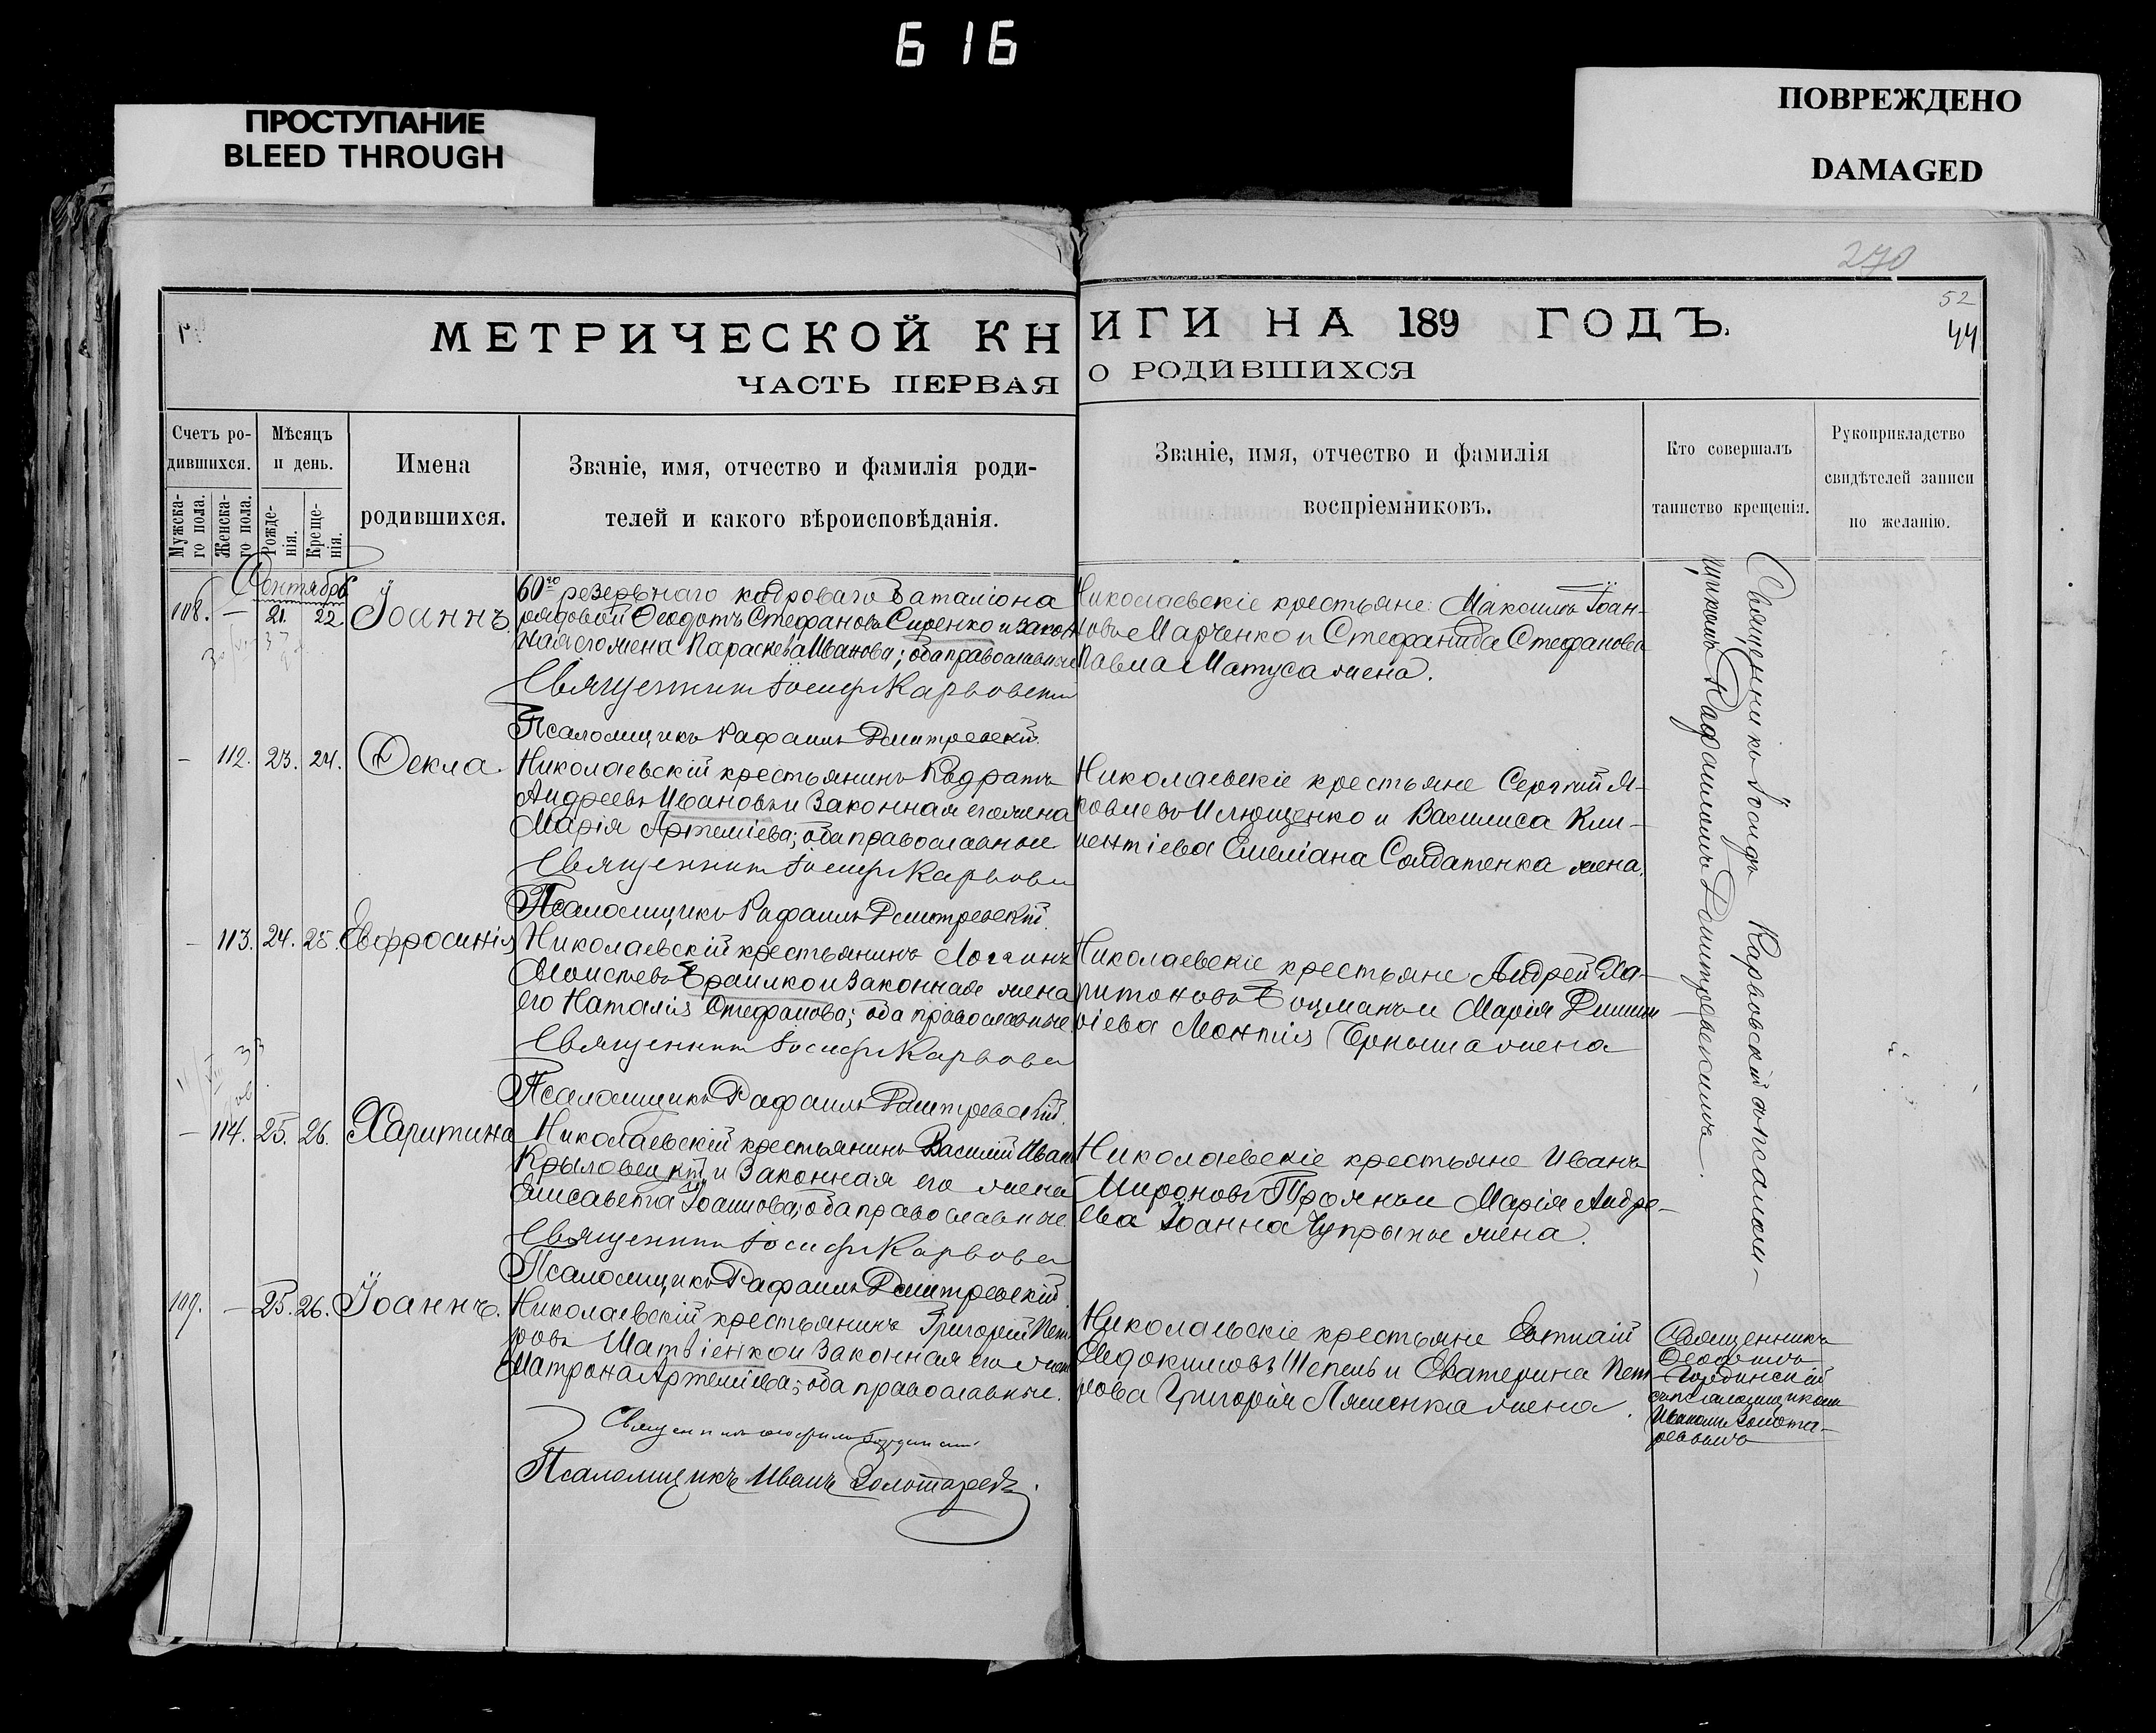 616
ПРОСТУПАНИЕ
BLEED THROUGH
ПОВРЕЖДЕНО
DAMAGED
270
52
44
МЕТРИЧЕСКОЙ КНИГИ НА 189 ГОДЪ.
ЧАСТЬ ПЕРВАЯ О РОДИВШИХСЯ
Счетъ ро-
дившихся.
Мужска-
го пола.
Женска-
го пола.
Мѣсяцъ
и день.
Рожде-
нія.
Креще-
нія.
Имена
родившихся.
Званіе, имя, отчество и фамилія роди-
телей и какого вѣроисповѣданія.
Званіе, имя, отчество и фамилія
воспріемниковъ.
Кто совершалъ
таинство крещенія.
Рукоприкладство
свидѣтелей записи
по желанію.
Сентябрь
108. — 21. 22. Іоаннъ.
60го резервнаго кадроваго баталіона
рядовой Ѳеодотъ Стефановъ Сиренко и закон
ная его жена Параскева Иванова; оба православные
Священник Іосиф Карвовски
Псаломщикъ Рафаилъ Дмитревскій.
Николаевскіе крестьяне: Максимъ Іоан-
новъ Марченко и Стефанида Стефанова
Павла Матуса жена.
— 112. 23. 24. Ѳекла.
Николаевскій крестьянинъ Кодратъ
Андреевъ Ивановъ и законная его жена
Марія Артеміева; оба православные
Священник Іосиф Карвовски
Псаломщикъ Рафаилъ Дмитревскій.
Николаевскіе крестьяне Сергій Я-
ковлевъ Илющенко и Василиса Кли-
ментіева Емеліана Солдатенка жена.
— 113. 24. 25. Евфросинія
Николаевскій крестьянинъ Логгинъ
Моисеевъ и законная жена
его Наталія Стефанова; оба православные
Священник Іосиф Карвовски
Псаломщикъ Рафаилъ Дмитревскій.
Николаевскіе крестьяне Андрей Ха-
ритоновъ Боцманъ и Марія Димит
ріева жена
— 114. 25. 26. Харитина
Николаевскій крестьянинъ Василій Иван
Крыловецкій и законная его жена
Елисавета Іоаннова; оба православные
Священник Іосиф Карвовски
Псаломщикъ Рафаилъ Дмитревскій.
Николаевскіе крестьяне Иванъ
Мироновъ Троянъ и Марія Андре-
ева Іоанна Чупрыны жена.
109. — 25. 26. Іоаннъ.
Николаевскій крестьянинъ Григорій Пет
ровъ Матвіенко и законная его жен
Матрона Артеміева; оба православные.
Священникъ Ѳеофилъ
Псаломщикъ Иванъ Золотаревъ.
Николаевскіе крестьяне Евтихій
Евдокимовъ Шепель и Екатерина Пет
рова Григорія Ляшенка жена.
Священникъ Іосифъ Карвовскій съ псалом-
щикомъ Рафаиломъ Дмитревскимъ.
Священникъ
Ѳеофилъ
съ псаломщикомъ
Иваномъ Золота-
ревымъ